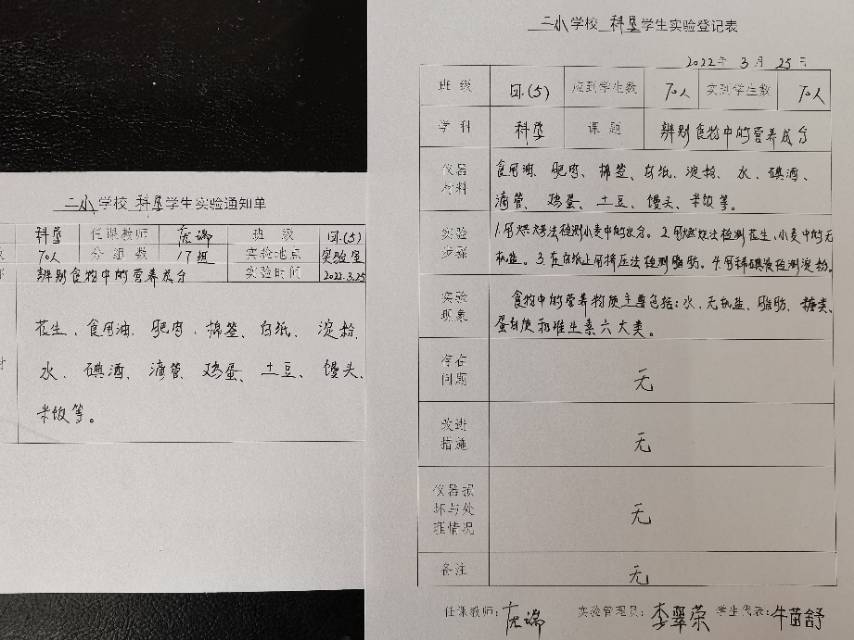 二小学校 科学学生实验通知单
科学 任课教师 班级 四.(5)
70人 分组数 17组 实验地点 实验室
辨别食物中的营养成分 实验时间 2022.3.25
花生、食用油、肥肉、棉签、白纸、淀粉、
水、碘酒、滴管、鸡蛋、土豆、馒头、
米饭等。
二小学校 科学学生实验登记表
2022年3月25日
班级 四.(5) 应到学生数 70人 实到学生数 70人
学科 科学 课题 辨别食物中的营养成分
仪器材料 食用油、肥肉、棉签、白纸、淀粉、水、碘酒、
滴管、鸡蛋、土豆、馒头、米饭等。
实验步骤 1.用烘烤法检测小麦中的水分。2.用燃烧法检测花生、小麦中的无
机盐。3.在白纸上用挤压法检测脂肪。4.用稀碘液检测淀粉。
实验现象 食物中的营养物质主要包括:水、无机盐、脂肪、糖类、
蛋白质和维生素六大类。
存在问题 无
改进措施 无
仪器损坏与处理情况 无
备注 无
任课教师: 实验管理员:李翠荣 学生代表:牛苗舒